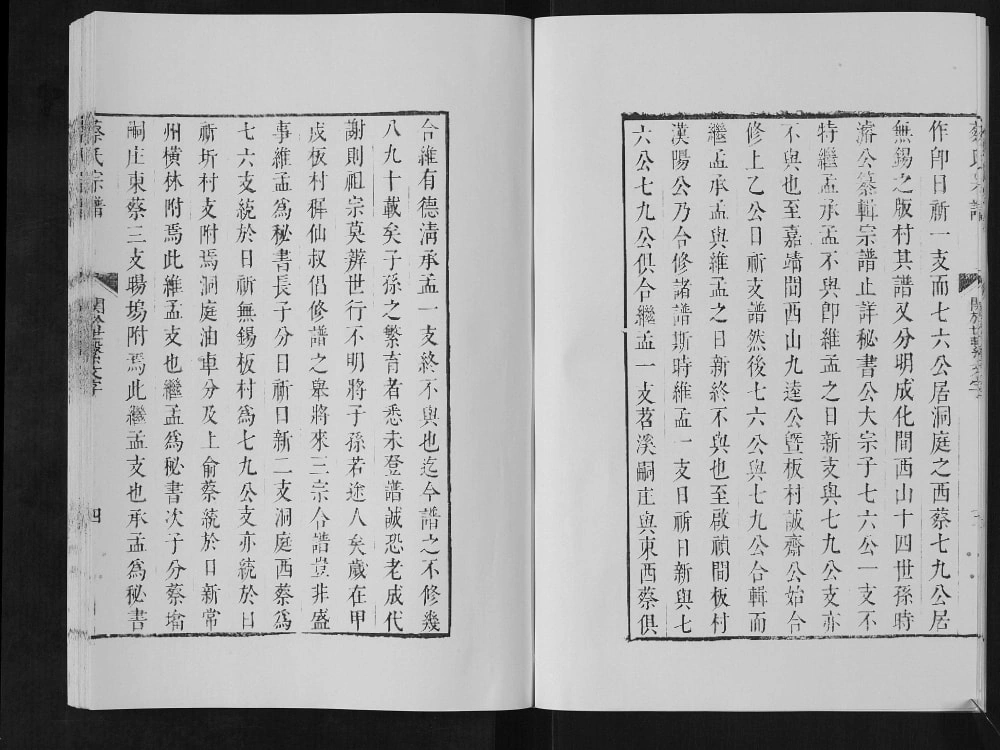 作卽日新一支而七六公居洞庭之西蔡七九公居
無錫之版村其譜又分明成化間西山十四世孫時
濬公纂輯宗譜止詳秘書公大宗子七六公一支不
特繼孟承孟不與卽維孟之日新支與七九公支亦
不與也至嘉靖間西山九逵公曁板村誠齋公始合
修上乙公日新支譜然後七六公與七九公合輯而
繼孟承孟與維孟之日新終不與也至啟禎間板村
漢陽公乃合修諸譜斯時維孟一支日新日新與七
六公七九公俱合繼孟一支苕溪嗣庄與東西蔡俱
合維有德清承孟一支終不與也迄今譜之不修幾
八九十載矣子孫之繁育者悉未登譜誠恐老成代
謝則祖宗莫辨世行不明將子孫若途人矣歲在甲
戌板村穉仙叔倡修譜之舉將來三宗合譜豈非盛
事維孟爲秘書長子分日新日新二支洞庭西蔡爲
七六支統於日新無錫板村爲七九公支亦統於日
新圻村支附焉洞庭油車分及上俞蔡統於日新常
州橫林附焉此維孟支也繼孟爲秘書次子分蔡壩
嗣庄東蔡三支暘塢附焉此繼孟支也承孟爲秘書
蔡氏宗譜
四